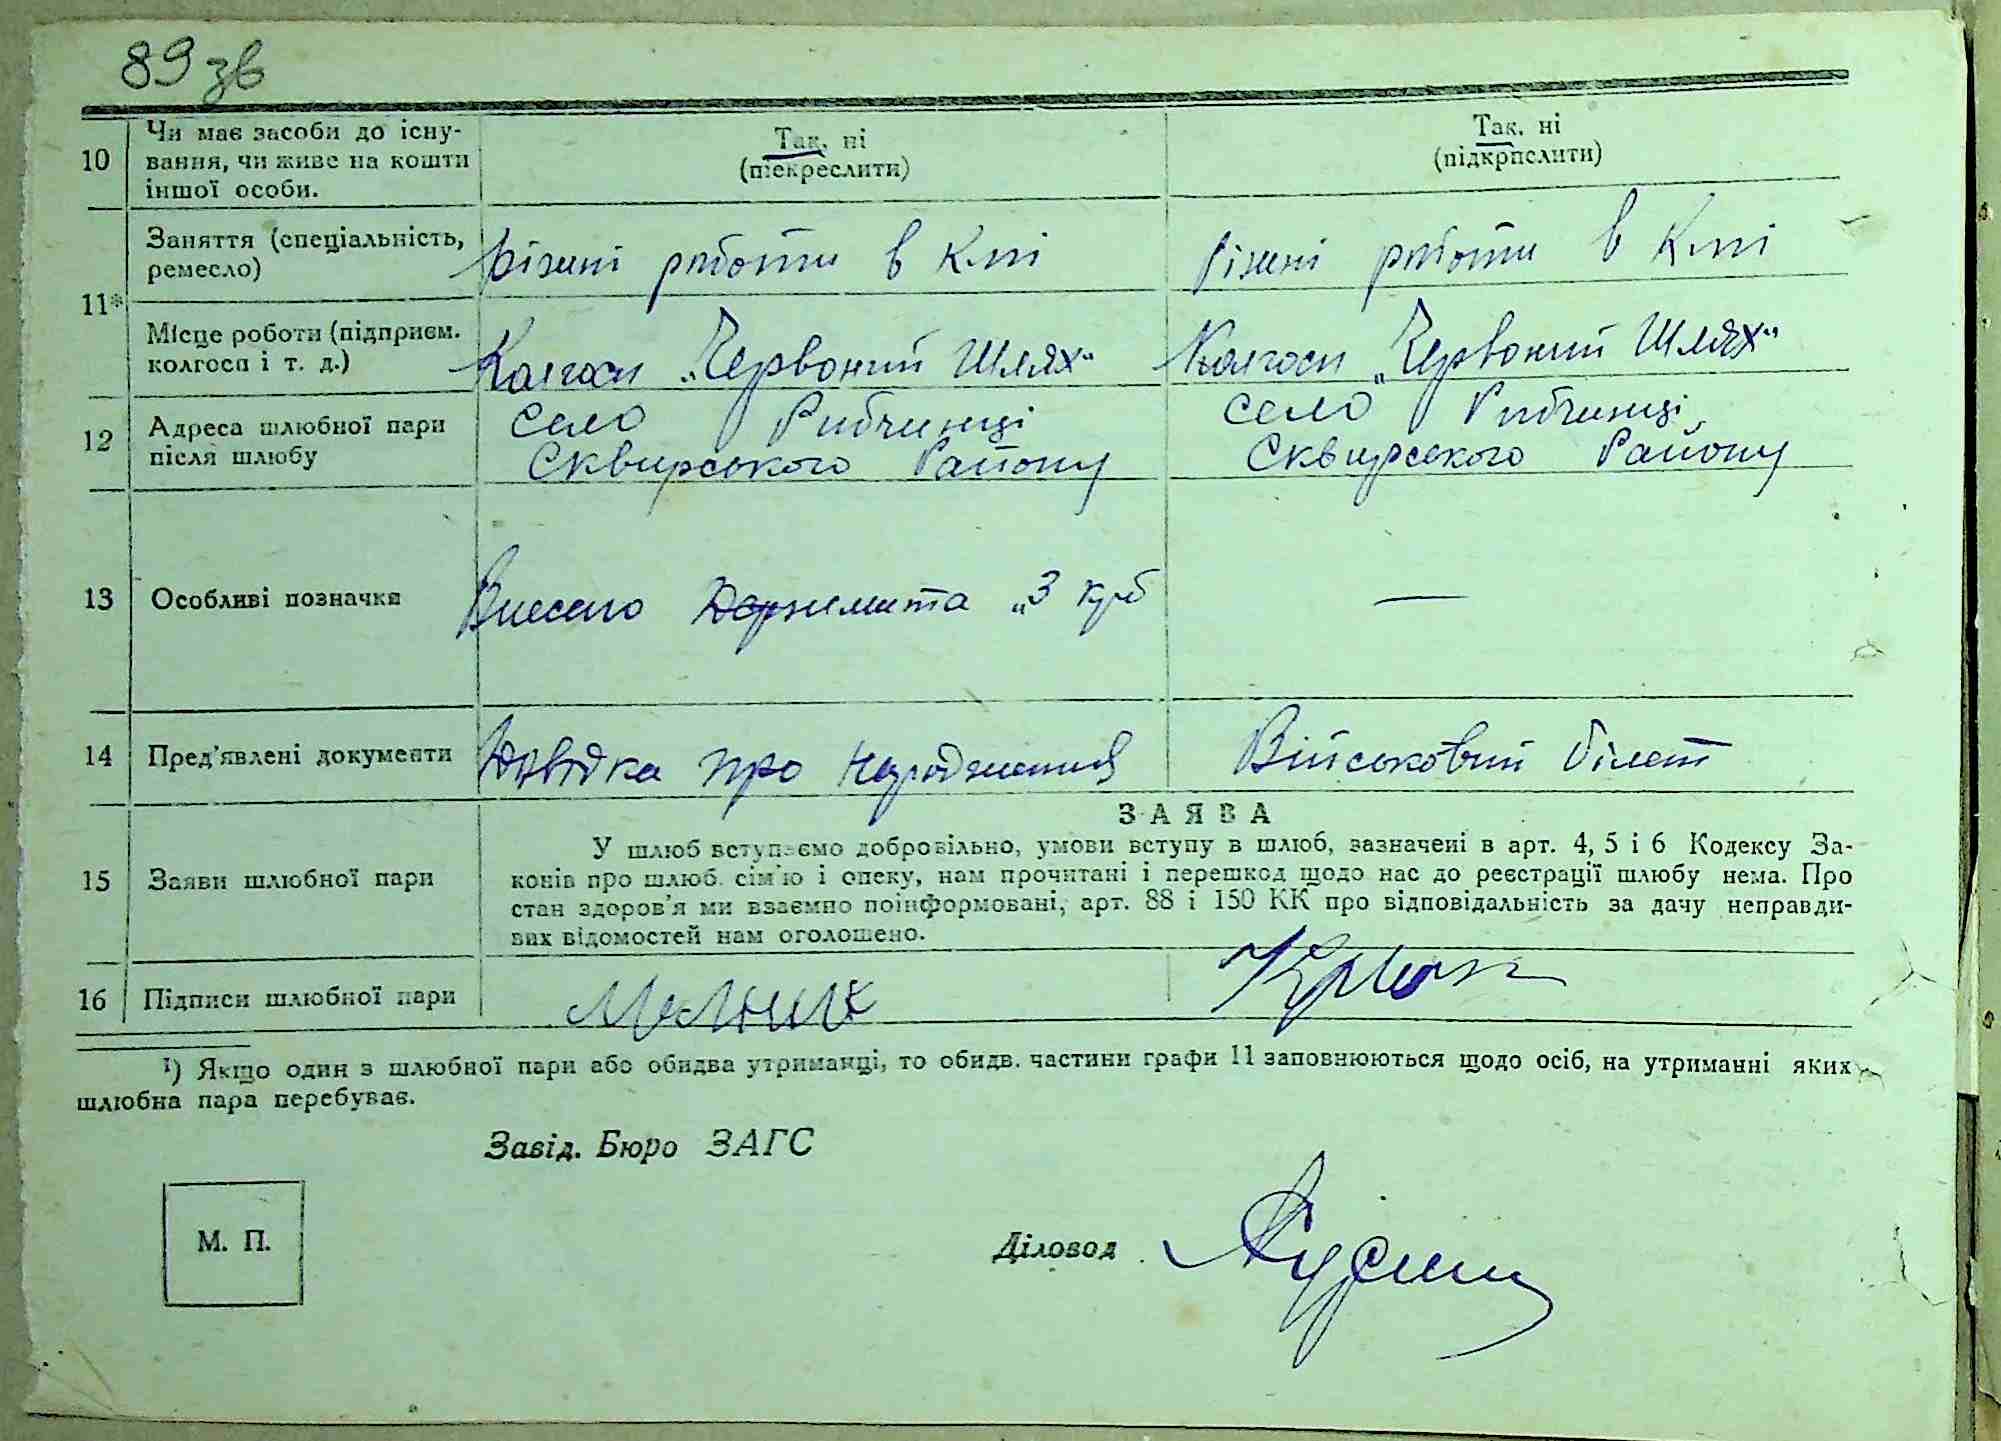 89 зв
10
Чи має засоби до існу-
вання, чи живе на кошти
іншої особи.
Так, ні
(підкреслити)
Так, ні
(підкрпслити)
11*
Заняття (спеціальність,
ремесло)
різині роботи в Клпі
різині роботи в Клпі
Місце роботи (підприєм.
колгосп і т. д.)
Колгосп „Червоний Шлях"
Колгосп „Червоний Шлях"
12
Адреса шлюбної пари
після шлюбу
село Рибчинці
Сквирського Району
село Рибчинці
Сквирского Району
13
Особливі позначки
Внесено Держмита „3 крб
—
14
Пред'явлені документи
Довідка про народження
Військовий білет
15
Заяви шлюбної пари
ЗАЯВА
У шлюб вступаємо добровільно, умови вступу в шлюб, зазначені в арт. 4, 5 і 6 Кодексу За-
конів про шлюб. сім'ю і опеку, нам прочитані і перешкод щодо нас до реєстрації шлюбу нема. Про
стан здоров'я ми взаємно поінформовані, арт. 88 і 150 КК про відповідальність за дачу неправди-
вих відомостей нам оголошено.
16
Підписи шлюбної пари
Мельник
¹) Якщо один з шлюбної пари або обидва утриманці, то обидв. частини графи 11 заповнюються щодо осіб, на утриманні яких
шлюбна пара перебуває.
Завід. Бюро ЗАГС
М. П.
Діловод